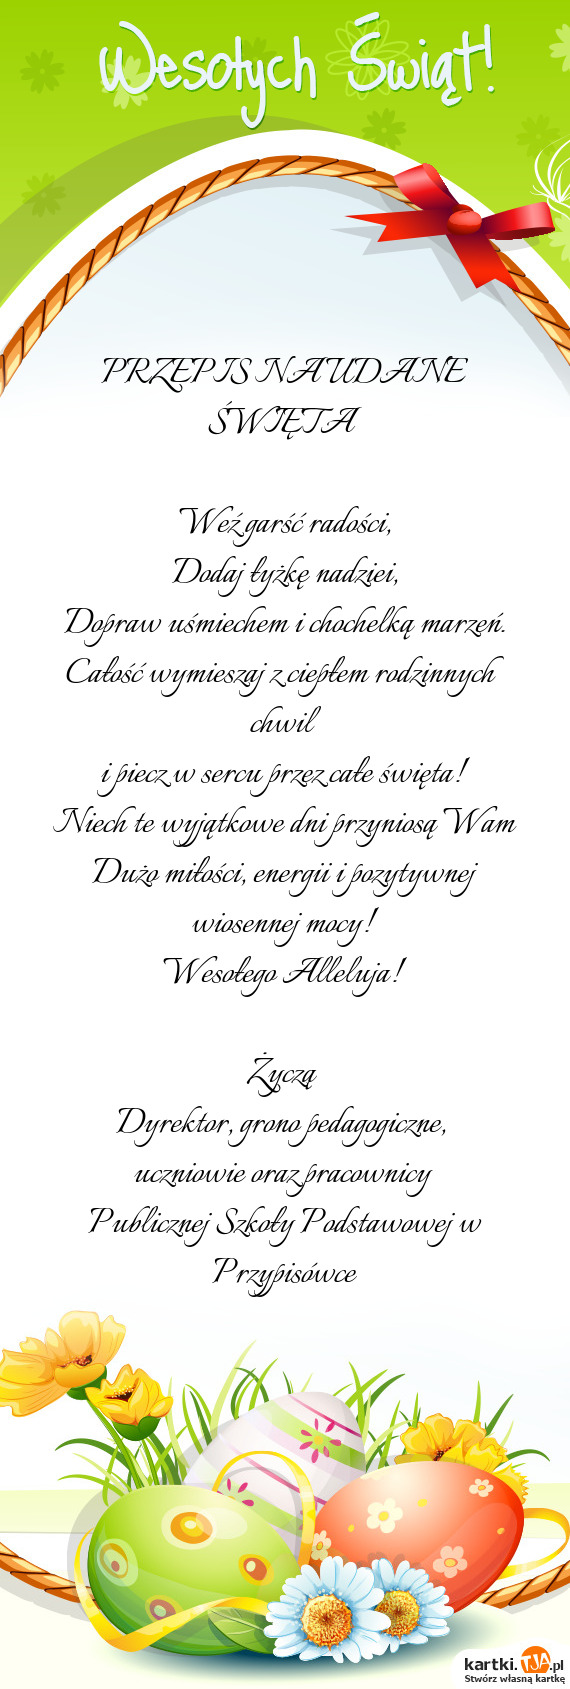 Wesołych Świąt!
PRZEPIS NA UDANE
ŚWIĘTA
Weź garść radości,
Dodaj łyżkę nadziei,
Dopraw uśmiechem i chochelką marzeń.
Całość wymieszaj z ciepłem rodzinnych
chwil
i piecz w sercu przez całe święta!
Niech te wyjątkowe dni przyniosą Wam
Dużo miłości, energii i pozytywnej
wiosennej mocy!
Wesołego Alleluja!
Życzą
Dyrektor, grono pedagogiczne,
uczniowie oraz pracownicy
Publicznej Szkoły Podstawowej w
Przypisówce
kartki.TJA.pl
Stwórz własną kartkę